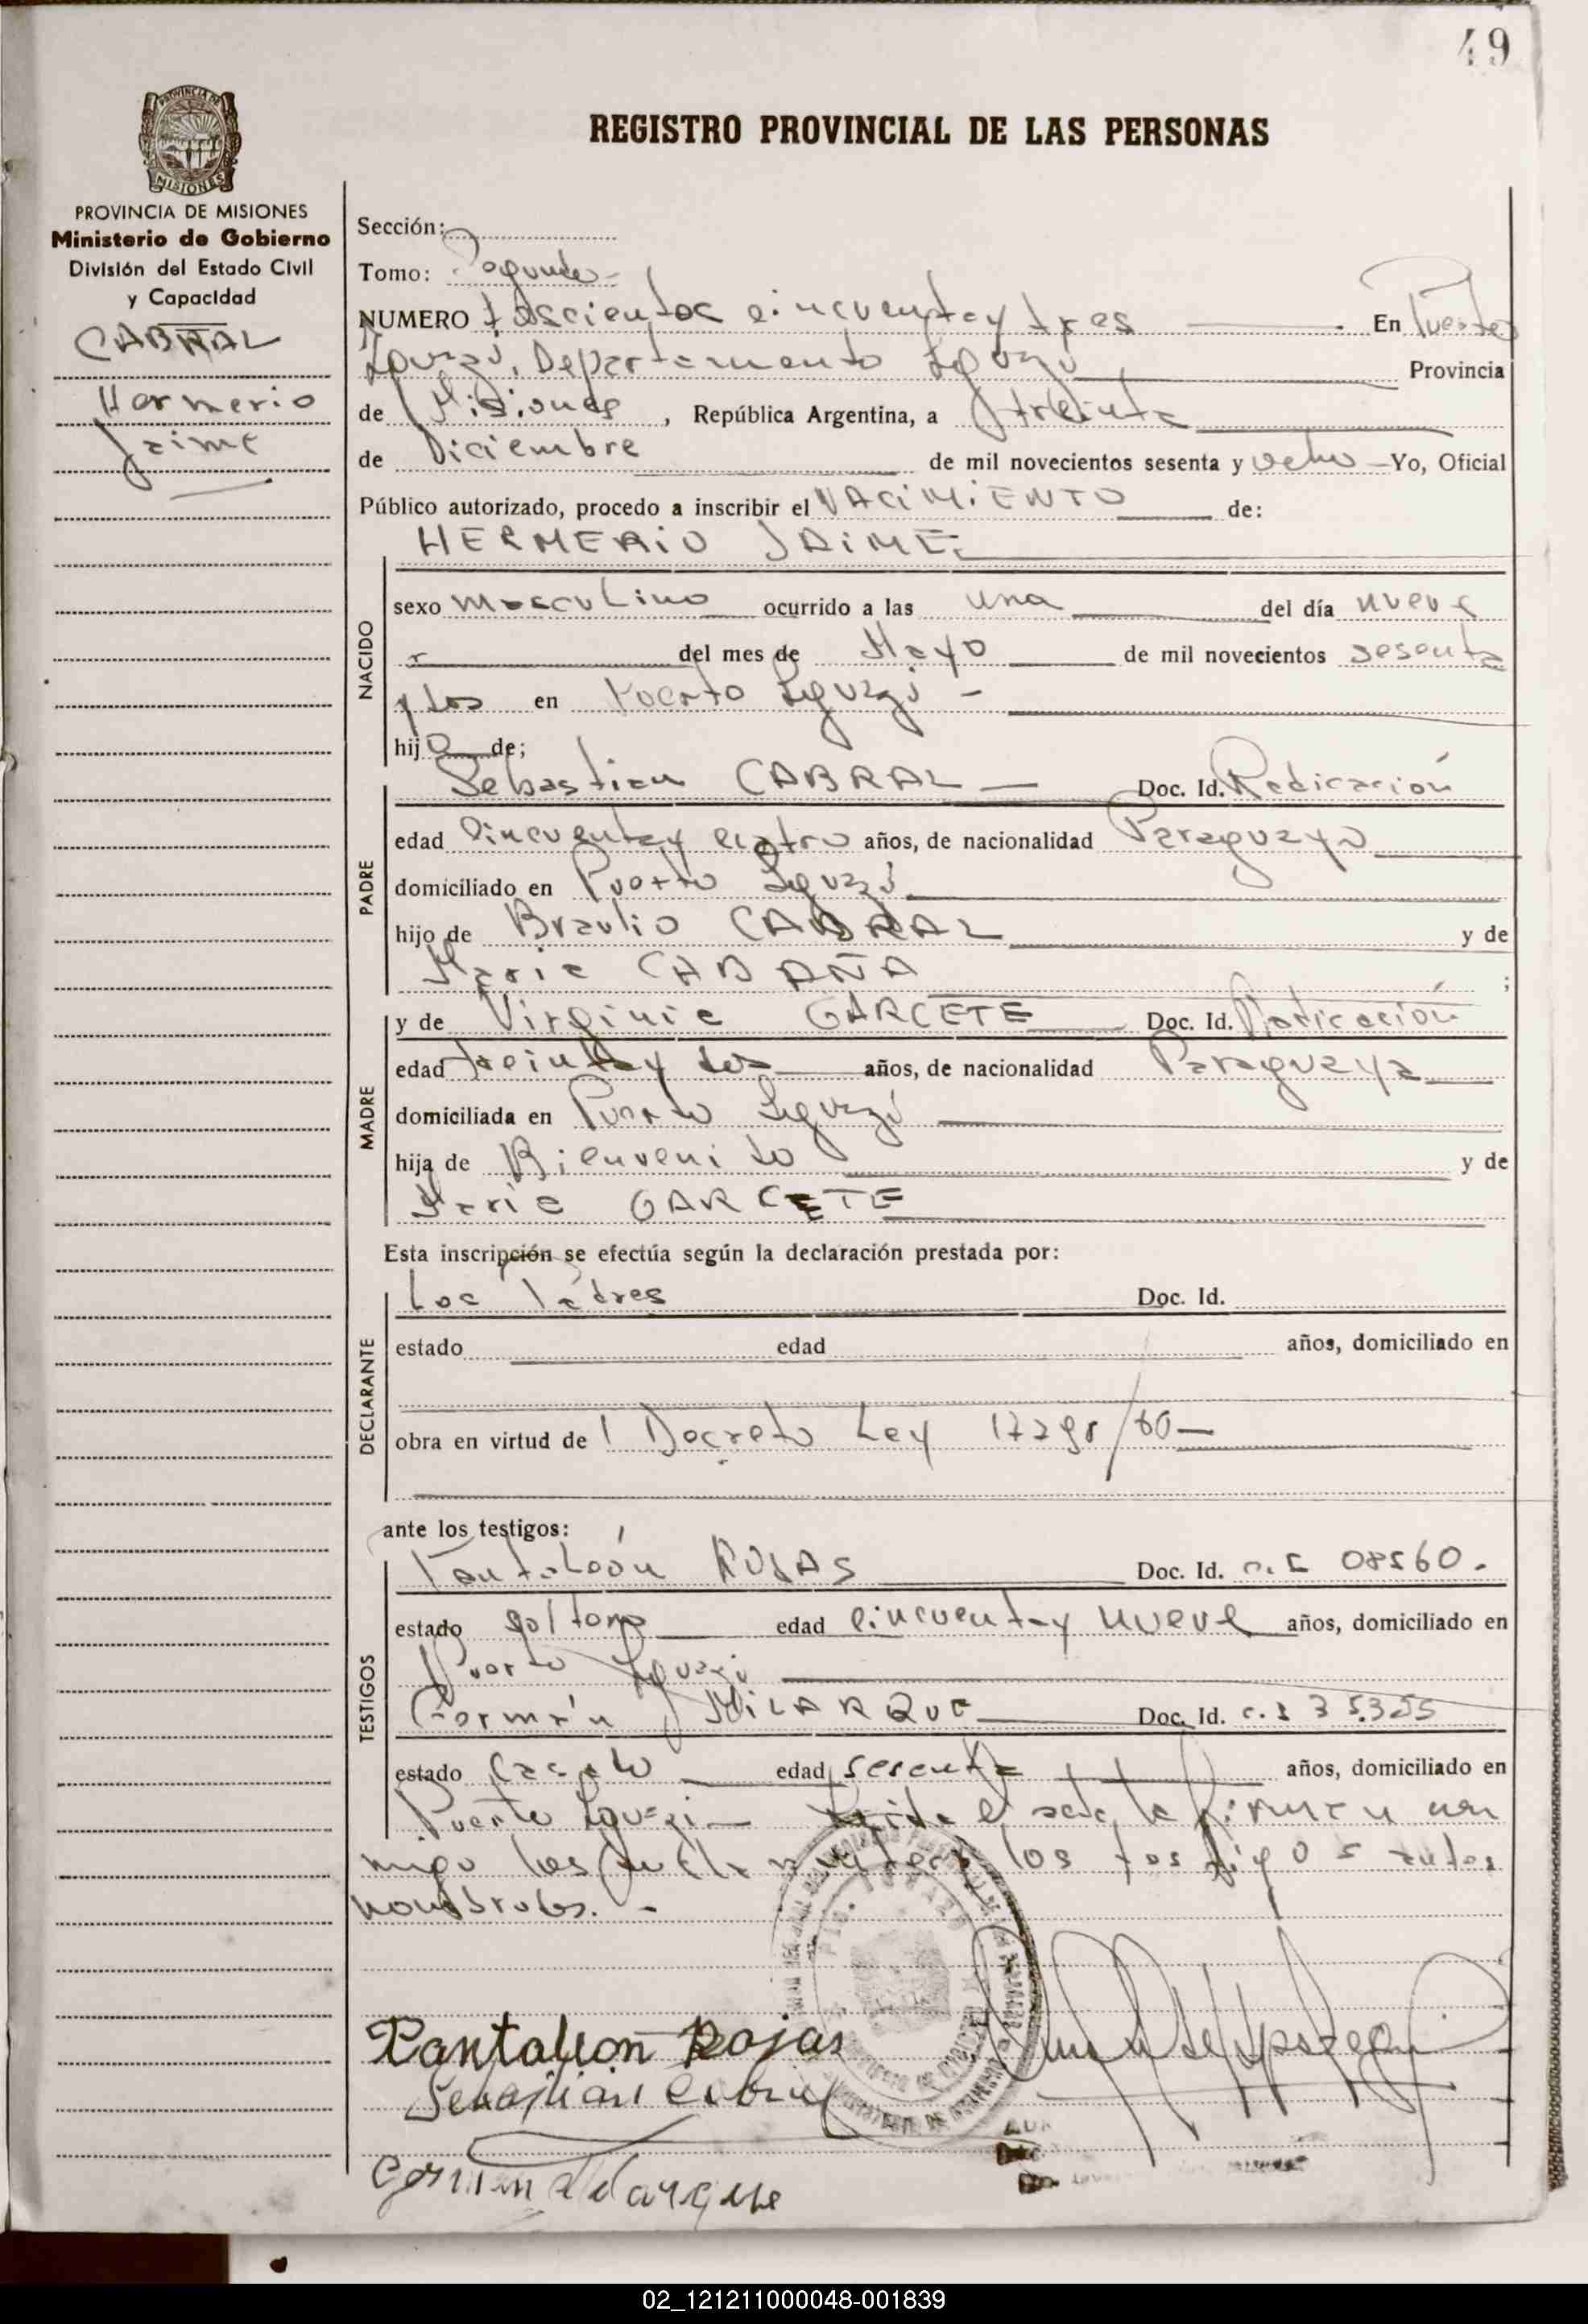 49
REGISTRO PROVINCIAL DE LAS PERSONAS
PROVINCIA DE
MISIONES
PROVINCIA DE MISIONES
Ministerio de Gobierno
División del Estado Civil
y Capacidad
CABRAL
Hermerio
Jaime
Sección:
Tomo: Segundo -
NUMERO cincuenta y tres — . En Puerto
Iguazú, Departamento Iguazú Provincia
de Misiones , República Argentina, a treinta
de Diciembre de mil novecientos sesenta y ocho — Yo, Oficial
Público autorizado, procedo a inscribir el NACIMIENTO de:
HERMERIO JAIME.
NACIDO
sexo masculino ocurrido a las una del día nueve
del mes de Mayo de mil novecientos sesenta
y dos en Puerto Iguazú -
hijo de;
PADRE
Sebastian CABRAL — Doc. Id. Radicación
edad Cincuenta y cuatro años, de nacionalidad Paraguayo
domiciliado en Puerto Iguazú
hijo de Braulio CABRAL y de
Maria CABAÑA ;
MADRE
y de Virginia GARCETE Doc. Id. Radicación
edad treinta y dos años, de nacionalidad Paraguaya
domiciliada en Puerto Iguazú
hija de Bienvenido y de
Maria GARCETE
Esta inscripción se efectúa según la declaración prestada por:
DECLARANTE
Los Padres Doc. Id.
estado edad años, domiciliado en
obra en virtud de l Decreto Ley /60—
ante los testigos:
TESTIGOS
Pantaleón ROJAS Doc. Id. 08560.
estado soltero edad cincuenta y nueve años, domiciliado en
Puerto Iguazú
Germán Doc. Id. c.I 35.355
estado casado edad sesenta años, domiciliado en
Puerto Iguazú — Leida el acta la firman con
migo los los testigos antes
nombrados. -
Pantalion Rojas
Sebastian Cabral
German
02_121211000048-001839